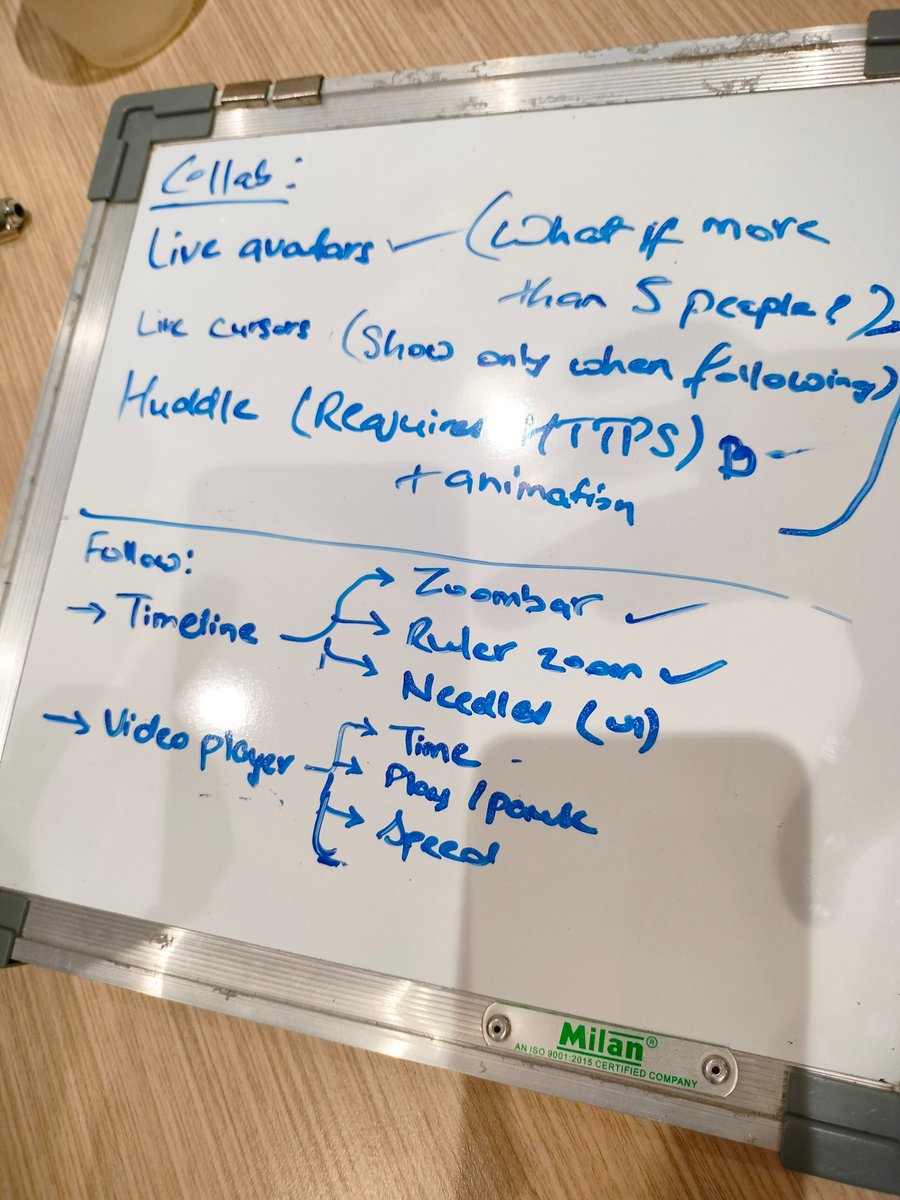 Collab:
Live avatars ✓ (What if more
than 5 people?)
Live cursors (Show only when following)
Huddle (Requires HTTPS)
+ animation
Follow:
→ Timeline → Zoombar ✓
→ Ruler zoom ✓
→ Needle (UI)
→ Video player → Time
→ Play / pause
→ Speed
Milan®
AN ISO 9001:2015 CERTIFIED COMPANY